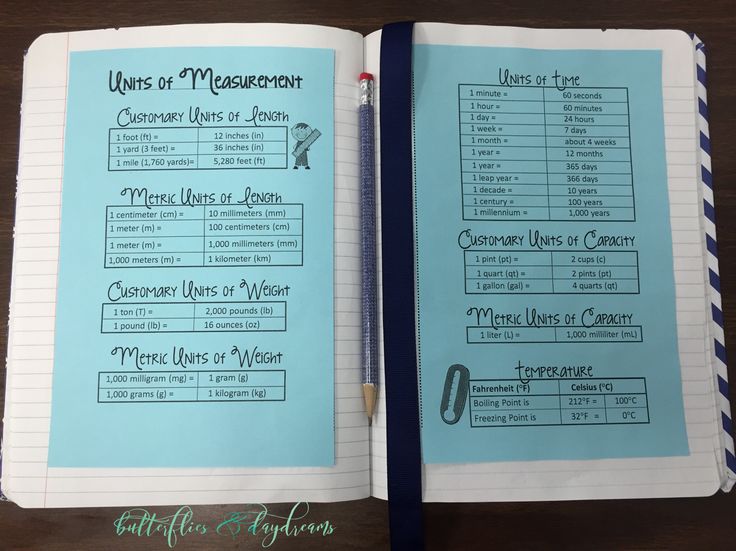 Units of Measurement
Customary Units of Length
1 foot (ft) = 12 inches (in)
1 yard (3 feet) = 36 inches (in)
1 mile (1,760 yards)= 5,280 feet (ft)
Metric Units of Length
1 centimeter (cm) = 10 millimeters (mm)
1 meter (m) = 100 centimeters (cm)
1 meter (m) = 1,000 millimeters (mm)
1,000 meters (m) = 1 kilometer (km)
Customary Units of Weight
1 ton (T) = 2,000 pounds (lb)
1 pound (lb) = 16 ounces (oz)
Metric Units of Weight
1,000 milligram (mg) = 1 gram (g)
1,000 grams (g) = 1 kilogram (kg)
Units of Time
1 minute = 60 seconds
1 hour = 60 minutes
1 day = 24 hours
1 week = 7 days
1 month = about 4 weeks
1 year = 12 months
1 year = 365 days
1 leap year = 366 days
1 decade = 10 years
1 century = 100 years
1 millennium = 1,000 years
Customary Units of Capacity
1 pint (pt) = 2 cups (c)
1 quart (qt) = 2 pints (pt)
1 gallon (gal) = 4 quarts (qt)
Metric Units of Capacity
1 liter (L) = 1,000 milliliter (mL)
Temperature
Fahrenheit (°F) Celsius (°C)
Boiling Point is 212°F = 100°C
Freezing Point is 32°F = 0°C
butterflies & daydreams